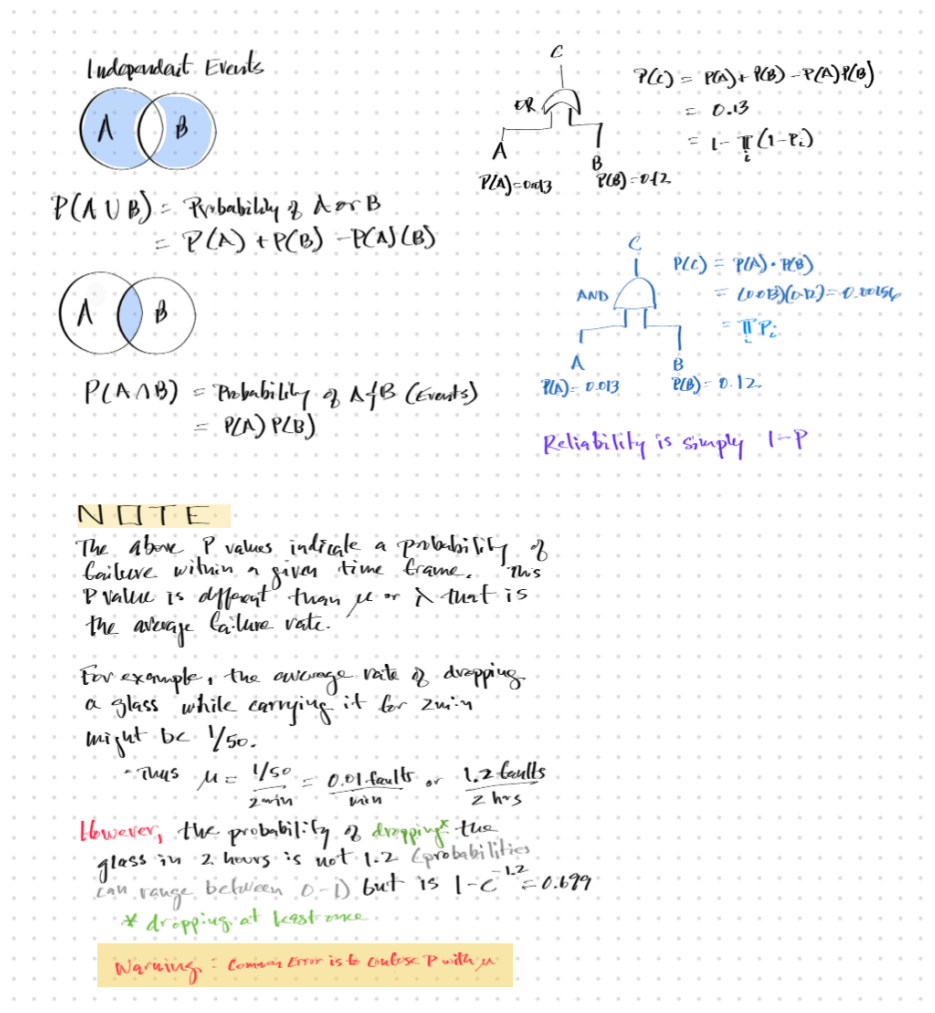 Independent Events
A B
P(A ∪ B) = Probability of A or B
= P(A) + P(B) - P(A)(B)
A B
P(A ∩ B) = Probability of A & B (Events)
= P(A) P(B)
C
OR
A
B
P(A) = 0.013
P(B) = 0.12
P(C) = P(A) + P(B) - P(A)P(B)
= 0.13
= 1 - π (1 - Pi)
i
C
AND
A
B
P(A) = 0.013
P(B) = 0.12
P(C) = P(A) · P(B)
= (0.013)(0.12) = 0.00156
= π Pi
i
Reliability is simply 1-P
NOTE
The above P values indicate a probability of
failure within a given time frame. This
P value is different than μ or λ that is
the average failure rate.
For example, the average rate of dropping
a glass while carrying it for 2min
might be 1/50.
- Thus μ = 1/50 / 2min = 0.01 faults / min or 1.2 faults / 2 hrs
However, the probability of dropping* the
glass in 2 hours is not 1.2 (probabilities
can range between 0-1) but is 1-e^-1.2 = 0.699
* dropping at least once
Warning: Common Error is to confuse P with μ